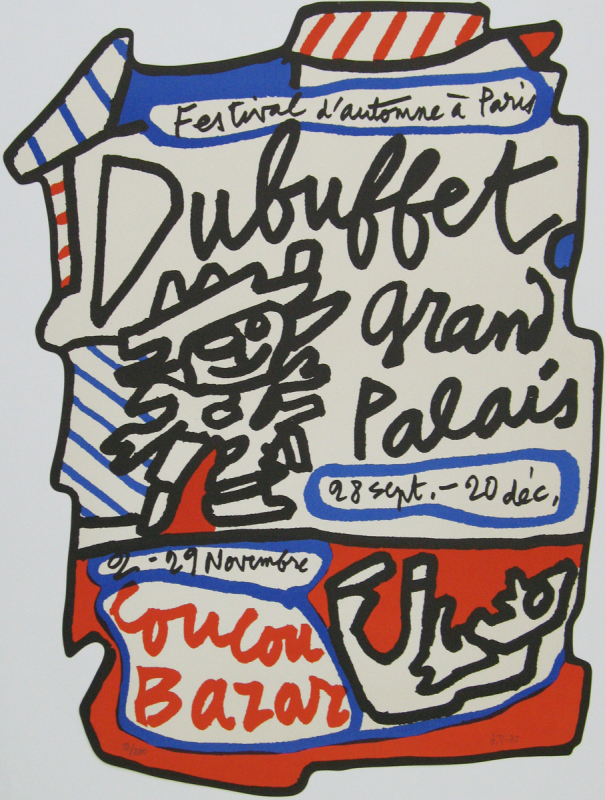 Festival d'automne à Paris
Dubuffet
Grand
Palais
28 sept. - 20 déc.
2 - 29 Novembre
Coucou
Bazar